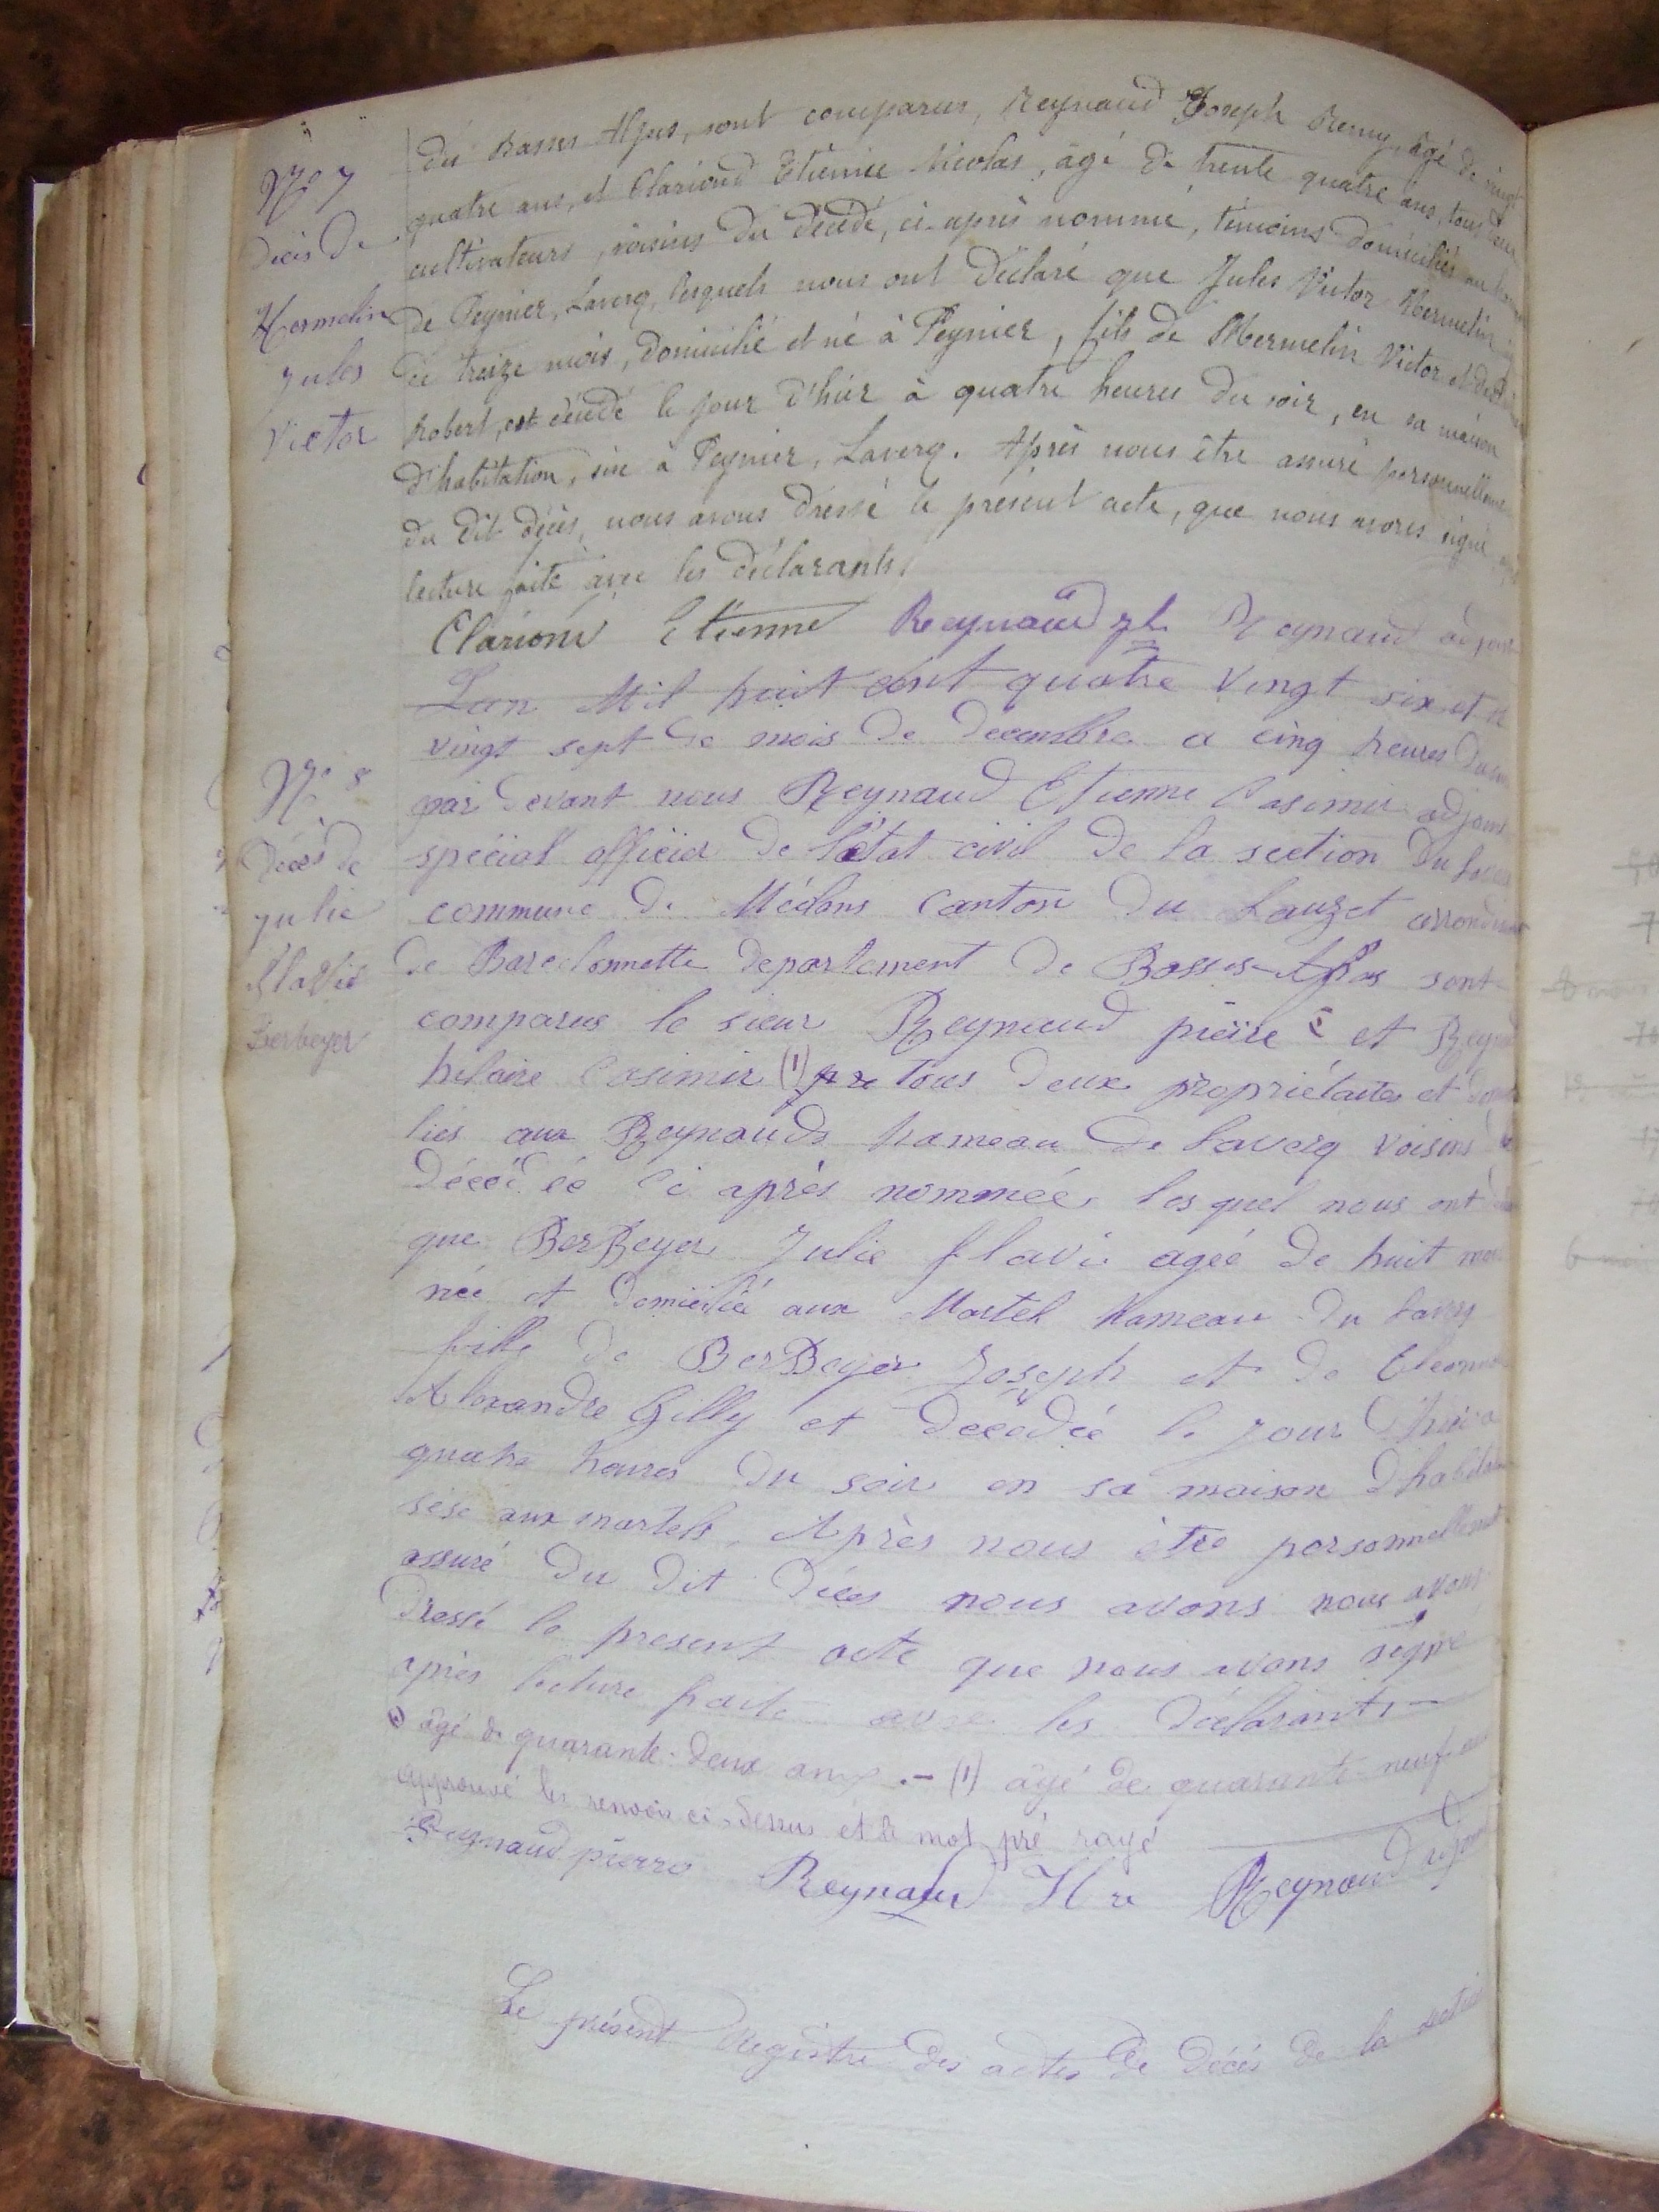 N° 7
Décès de
Hermelin
Jules
Victor
des Basses Alpes, sont comparus, Reynaud Joseph Remy, âgé de vingt
quatre ans, et Clariond Etienne Nicolas, âgé de trente quatre ans, tous deux
cultivateurs, voisins du décédé, ci-après nommé, témoins domiciliés au
de Peynier, Laverq, lesquels nous ont déclaré que Jules Victor Hermelin
de treize mois, domicilié et né à Peynier, fils de Hermelin Victor et de
Robert, est décédé le jour d'hier à quatre heures du soir, en sa maison
d'habitation, sise à Peynier, Laverq. Après nous être assuré personnellement
du dit décès, nous avons dressé le présent acte, que nous avons signé
lecture faite avec les déclarants,
Clariond Etienne Reynaud Reynaud adjoint
N° 8
Décès de
Julie
Flavie
Berbeyer
Lan Mil huit cent quatre vingt six et le
vingt sept de mois de decembre a cinq heures du
par devant nous Reynaud Etienne Casimir adjoint
spécial officier de l'état civil de la section du
commune de Méolans Canton du Lauzet
de Barcelonnette departement de Basses-Alpes sont
comparus le sieur Reynaud pierre et
hilaire Casimir (1) pre tous deux propriétaires et
liés aux Reynauds hameau de Laverq voisins
décédée ci après nommée les quel nous ont
que BerBeyer Julie flavie agée de huit
née et domiciliée aux Martel Hameau du Laverq
fille de BerBeyer Joseph et de
Alexandre Gilly et décédée le jour
quatre heures du soir en sa maison
sise aux martels. Après nous être personnellement
assuré du dit décès nous avons nous avons
dressé le present acte que nous avons signé
après lecture faite avec les déclarants
âgé de quarante-deux ans. - (1) âgé de quarante-neuf ans
approuvé les renvois ci-dessus et le mot pré rayé
Reynaud pierre Reynaud Hre Reynaud adjoint
Le présent Registre des actes de décès de la section